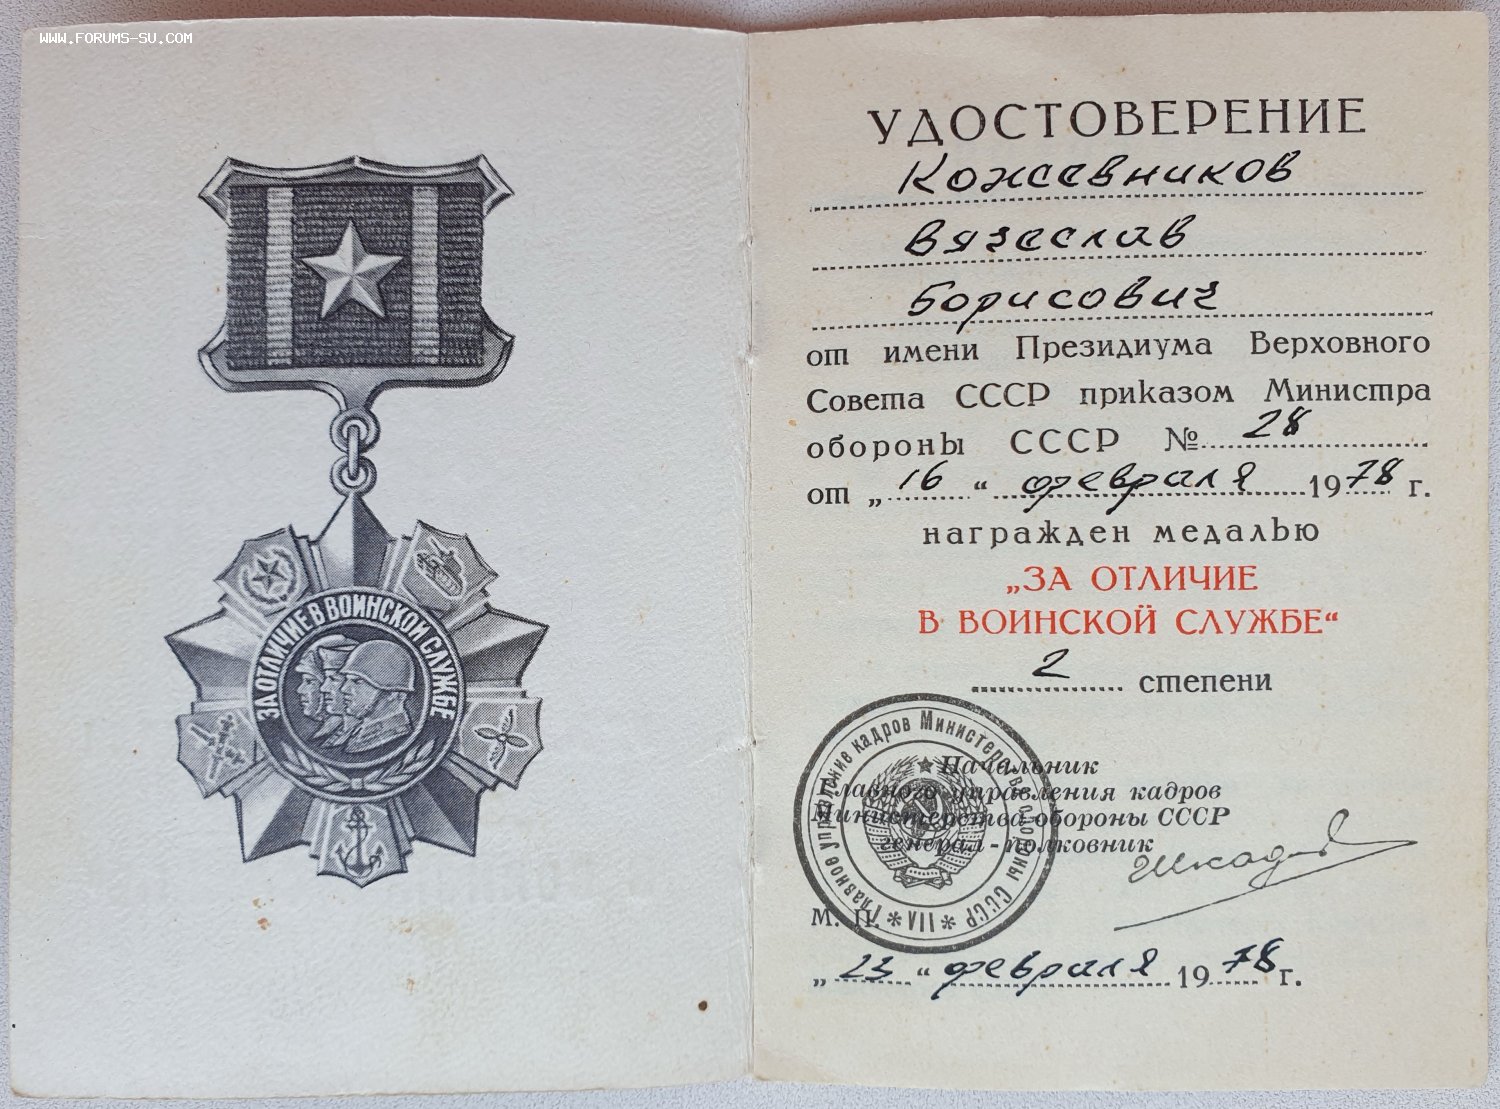 WWW.FORUMS-SU.COM
ЗА ОТЛИЧИЕ В ВОИНСКОЙ СЛУЖБЕ
УДОСТОВЕРЕНИЕ
Кожевников
Вячеслав
Борисович
от имени Президиума Верховного
Совета СССР приказом Министра
обороны СССР № 28
от „16“ февраля 1978 г.
награжден медалью
„ЗА ОТЛИЧИЕ
В ВОИНСКОЙ СЛУЖБЕ“
2 степени
Начальник
Главного управления кадров
Министерства обороны СССР
генерал-полковник
М. П.
Главное управление кадров Министерства обороны СССР * VII *
„23“ февраля 1978 г.